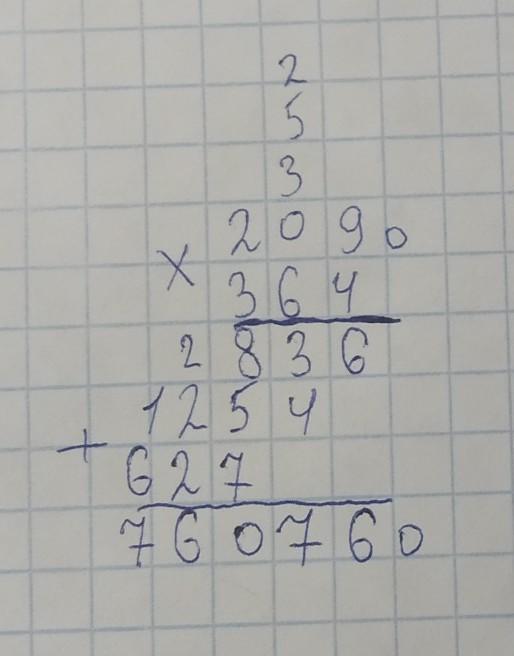 2
5
3
2090
× 364
2836
1254
+ 627
760760